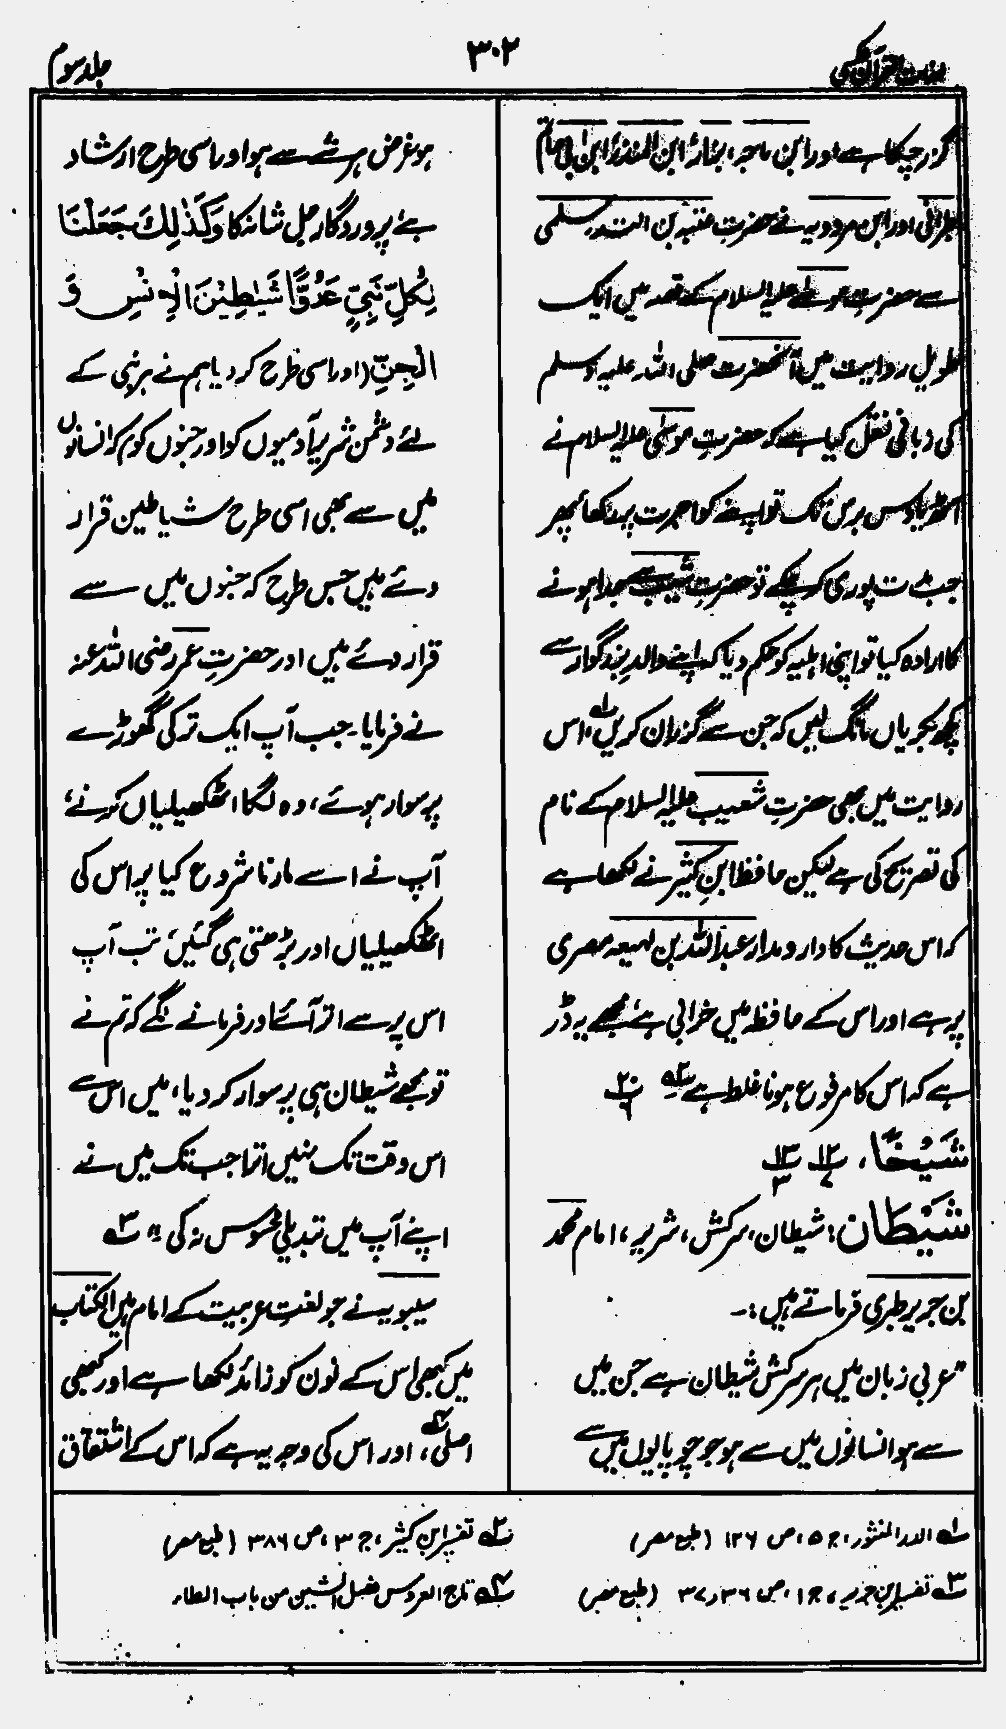 لغات القرآن
۳۰۲
جلد سوم
گزر چکا ہے اور ابن ماجہ، بزار، ابن المنذر، ابن ابی حاتم
طبرانی اور ابن مردویہ نے حضرت عتبہ بن الندر سلمی
سے حضرت موسیٰ علیہ السلام کے قصہ میں ایک
طویل روایت میں آنحضرت صلی اللہ علیہ وسلم
کی زبانی نقل کیا ہے کہ حضرت موسیٰ علیہ السلام نے
آٹھ یا دس برس تک تو اپنے کو اجرت پر رکھا پھر
جب مدت پوری کر چکے تو حضرت شعیب سے جدا ہونے
کا ارادہ کیا تو اپنی اہلیہ کو حکم دیا کہ اپنے والد بزرگوار سے
کچھ بکریاں مانگ لیں کہ جن سے گزران کریں ۱ اس
روایت میں بھی حضرتِ شعیب علیہ السلام کے نام
کی تصریح کی ہے لیکن حافظ ابنِ کثیر نے لکھا ہے
کہ اس حدیث کا دار و مدار عبداللہ بن لہیعہ مصری
پر ہے اور اس کے حافظہ میں خرابی ہے، مجھے یہ ڈر
ہے کہ اس کا مرفوع ہونا غلط ہے ۲ ۲۰/۹
شَيْخًا، ۱۲/۷ ۱۳/۳
شَيْطَان: شیطان، سرکش، شریر، امام محمد
بن جریر طبری فرماتے ہیں:۔
"عربی زبان میں ہر سرکش شیطان ہے جن میں
سے ہو انسانوں میں سے ہو جو چوپایوں میں سے
ہو غرض ہر شے سے ہو اور اسی طرح ارشاد
ہے پروردگار جل شانہ کا وَكَذٰلِكَ جَعَلْنَا
لِكُلِّ نَبِيٍّ عَدُوًّا شَيٰطِيْنَ الْاِنْسِ وَ
الْجِنِّ (اور اسی طرح کر دیا ہم نے ہر نبی کے
لئے دشمن شریر آدمیوں کو اور جنوں کو) کہ انسانوں
میں سے بھی اسی طرح شیاطین قرار
دئے ہیں جس طرح کہ جنوں میں سے
قرار دئے ہیں اور حضرتِ عمر رضی اللہ عنہ
نے فرمایا۔ جب آپ ایک ترکی گھوڑے
پر سوار ہوئے، وہ لگا اٹکھیلیاں کرنے،
آپ نے اسے مارنا شروع کیا پر اس کی
اٹکھیلیاں اور بڑھتی ہی گئیں، تب آپ
اس پر سے اتر آئے اور فرمانے لگے کہ تم نے
تو مجھے شیطان ہی پر سوار کر دیا، میں اس سے
اس وقت تک نہیں اترا جب تک میں نے
اپنے آپ میں تبدیلی محسوس نہ کی" ۳
سیبویہ نے جو لغتِ عربیت کے امام ہیں الکتاب
میں کبھی اس کے نون کو زائد لکھا ہے اور کبھی
اصلی ۴، اور اس کی وجہ یہ ہے کہ اس کے اشتقاق
۱ الدر المنثور، ج ۵، ص ۱۲۶ (طبع مصر)
۲ تفسیر ابن کثیر، ج ۳، ص ۳۸۶ (طبع مصر)
۳ تفسیر ابن جریر، ج ۱، ص ۳۶، ۳۷ (طبع مصر)
۴ تاج العروس فصل الشین من باب الطاء